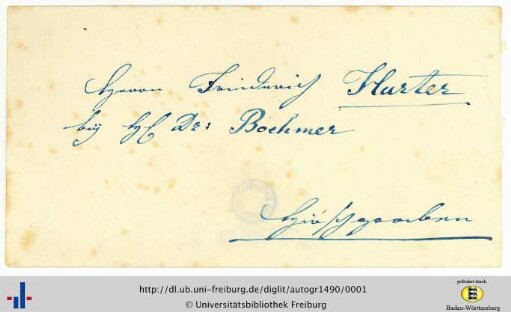 Herrn Friederich Hurter
bey H. Dr: Boehmer
Hirschgraben
http://dl.ub.uni-freiburg.de/diglit/autogr1490/0001
© Universitätsbibliothek Freiburg
gefördert durch
Baden-Württemberg